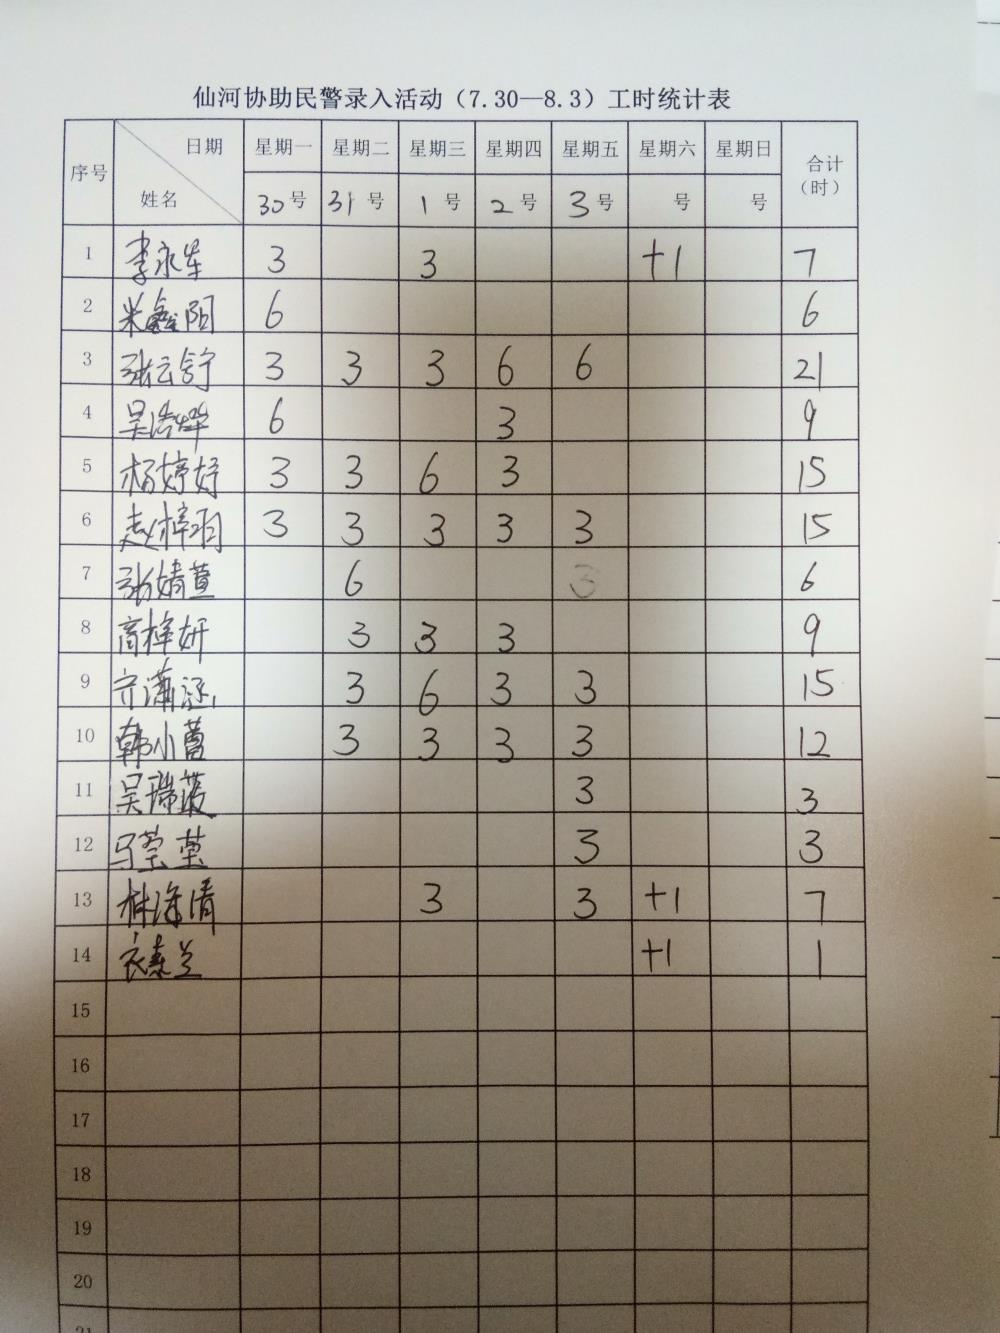 仙河协助民警录入活动（7.30—8.3）工时统计表
序号 日期 姓名 星期一 星期二 星期三 星期四 星期五 星期六 星期日 合计（时）
30号 31号 1号 2号 3号 号 号
1 李永生 3 3 +1 7
2 米鑫阳 6 6
3 张云舒 3 3 3 6 6 21
4 吴浩烨 6 3 9
5 杨婷妤 3 3 6 3 15
6 赵梓羽 3 3 3 3 3 15
7 张婧萱 6 3 6
8 高梓妍 3 3 3 9
9 3 6 3 3 15
10 韩小萱 3 3 3 3 12
11 吴瑞 3 3
12 马莹莹 3 3
13 林泽清 3 3 +1 7
14 衣素兰 +1 1
15
16
17
18
19
20
21